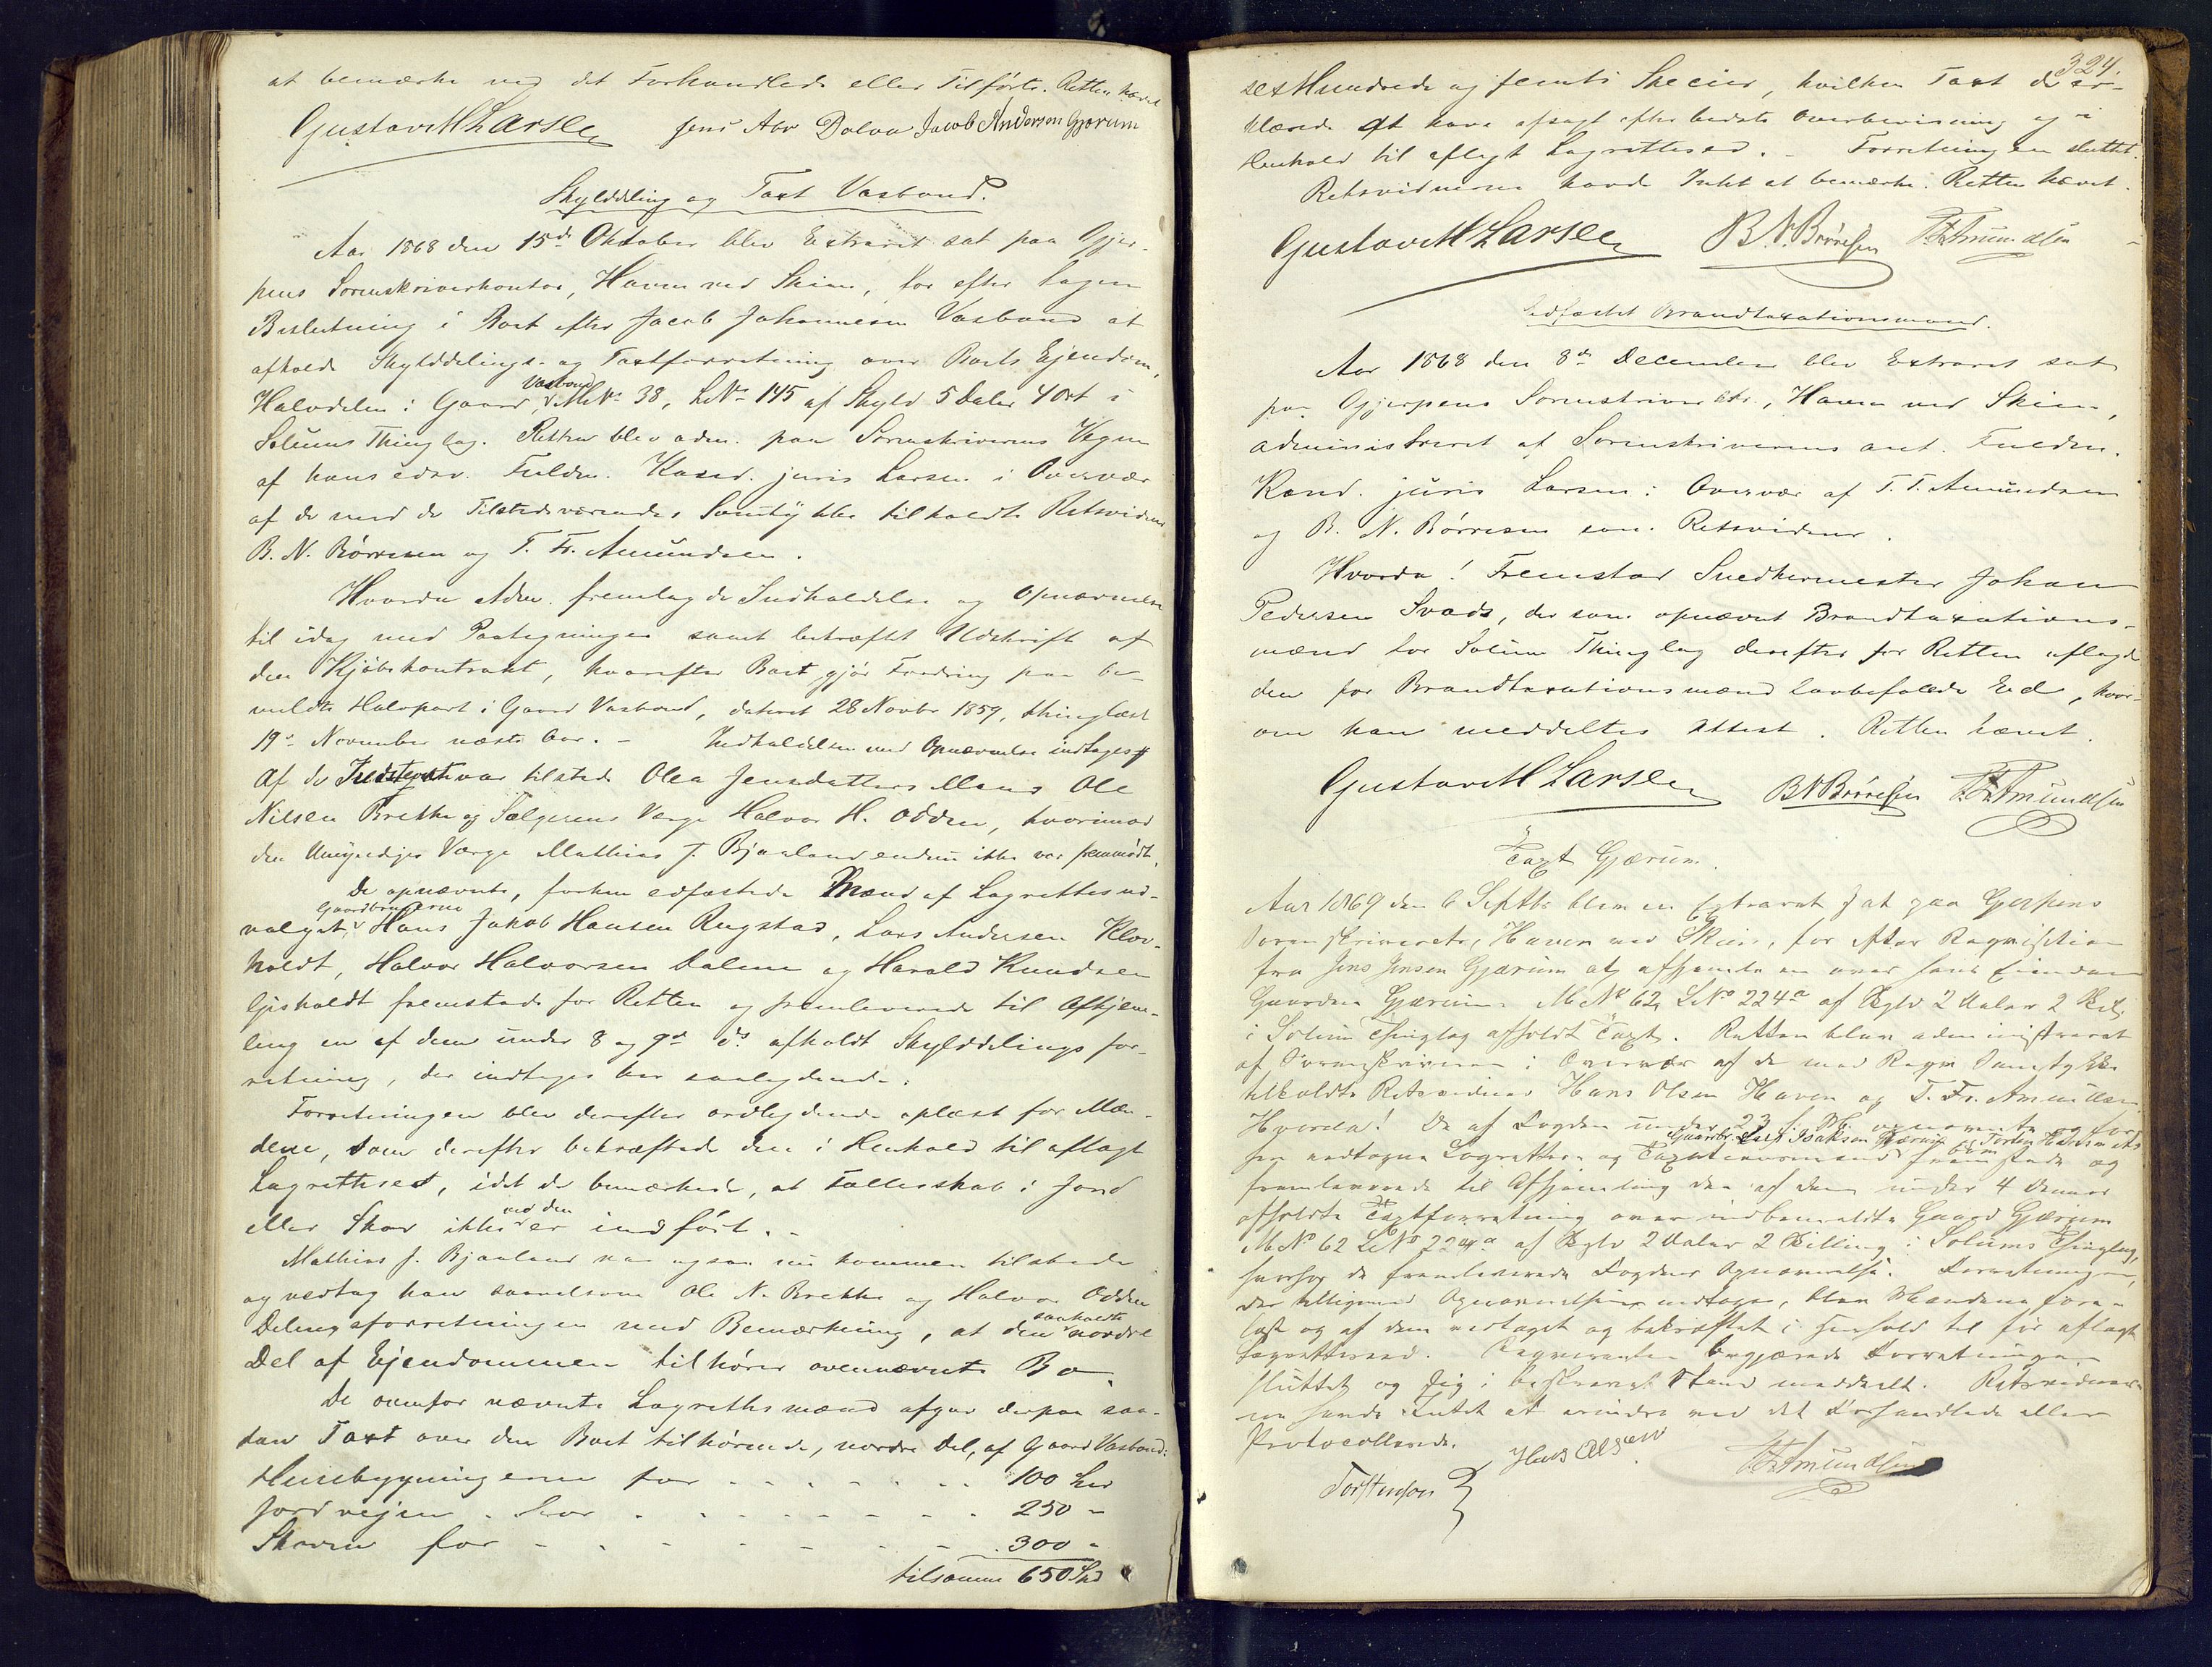 at bemærke ved det Forhandlede eller Tilførte. Retten hævet
Gustav M Larsen Jens Abr Dolva Jacob Andersen Gjærum
Skylddeling og Taxt Vasbond.
Aar 1868 den 15de Oktober blev Extraret sat paa Gjer-
pens Sorenskriverkontor, Haven ved Skien, for efter tagen
Beslutning i Boet efter Jacob Johannesen Vasbond at
afholde Skylddelings- og Taxtforretning over Boets Ejendom,
Halvdelen i Gaard, Vasbond MNo 38, LNo 145 af Skyld 5 Daler 4 Ort i
Solums Thinglag. Retten blev adm. paa Sorenskriverens Vegne
af hans edsv. Fuldm. Kand. juris Larsen i Overvær
af de med de Tilstedeværendes Samtykke tilkaldte Retsvidner
B. N. Børresen og T. Fr. Amundsen.
Hvorda Adm. fremlagde Indkaldelse og Opnævnelse
til idag med Paategninger samt bekræftet Udskrift af
den Kjøbekontrakt, hvorefter Boet gjør Fordring paa be-
meldte Halvpart i Gaard Vasbond, dateret 28 Novbr 1859, thinglæst
19de November næste Aar. – Indkaldelsen med Opnævnelse indtages
Af de Indstevnte var tilstede Olea Jensdatters Mand Ole
Nilsen Brekke og Sælgerens Værge Halvor H. Odden, hvorimod
den Umyndiges Værge Mathias J. Bjaaland endnu ikke var fremmødt.
De opnævnte, forhen edfæstede Mænd af Lagrettesud-
valget, Gaardbrugerne Hans Jakob Hansen Rugstad, Lars Andersen Klov-
holdt, Halvor Halvorsen Dalene og Harald Knudsen
Gisholdt fremstode for Retten og fremleverede til Afhjem-
ling en af dem under 8 og 9de ds. afholdt Skylddelingsfor-
retning, der indtages her saalydende:
Forretningen blev derefter ordlydende oplæst for Mæn-
dene, som derefter bekræftede den i Henhold til aflagt
Lagrettesed, idet de bemærkede, at Fællesskab i Jord
eller Skov ikke ved den er indført. –
Mathias J. Bjaaland var ogsaa nu kommen tilstede
og vedtog han saavelsom Ole N. Brekke og Halvor Odden
Delingsforretningen med Bemærkning, at den saakaldte nordre
Del af Ejendommen tilhører ovennævnte Bo.
De ovenfor nævnte Lagrettesmænd afgav derpaa saa-
dan Taxt over den Boet tilhørende, nordre Del, af Gaard Vasbond:
Husebygningerne for . . . . . . . 100 Spd
Jordvejen . for . . . . . . . . 250 "
Skoven for . . . . . . . 300 "
tilsammen 650 Spd
324.
sexHundrede og femti Specier, hvilken Taxt de er-
klærede at have afsagt efter bedste Overbevisning og i
Henhold til aflagt Lagrettesed. – Forretningen sluttet.
Retsvidnerne havde Intet at bemærke. Retten hævet.
Gustav M Larsen B N. Børresen T Fr Amundsen
Edfæstet Brandtaxationsmand.
Aar 1868 den 8de December blev Extraret sat
paa Gjerpens Sorenskriverktr., Haven ved Skien,
administreret af Sorenskriverens aut. Fuldm.
Kand. juris Larsen i Overvær af T. F. Amundsen
og B. N. Børresen som Retsvidner.
Hvorda! Fremstod Snedkermester Johan
Pedersen Svads, der som opnævnt Brandtaxations-
mand for Solum Thinglag derefter for Retten aflagde
den for Brandtaxationsmænd lovbefalede Ed, hvor-
om han meddeltes Attest. Retten hævet.
Gustav M Larsen B N Børresen T Fr Amundsen
Taxt Gjærum.
Aar 1869 den 6 Septbr blev en Extraret sat paa Gjerpens
Sorenskriverctr, Haven ved Skien, for efter Reqvisition
fra Jens Jensen Gjærum at afhjemle en over hans Eiendom
Gaarden Gjærum MNo 62, LNo 224a af Skyld 2 Daler 2 Skil.
i Solum Thinglag afholdt Taxt. Retten blev administreret
af Sorenskriveren i Overvær af de med Reqv. Samtykke
tilkaldte Retsvidner Hans Olsen Haven og T. Fr. Amundsen.
Hvorda! De af Fogden under 23 f. M. opnævnte og for-
hen edtagne Lagrettes- og Taxationsmænd Gaardbr. Lars Isaksen Gjærum og fremstode og
fremleverede til Afhjemling den af dem under 4 dennes
afholdte Taxtforretning over indbemeldte Gaard Gjærum
MNo 62 LNo 224a af Skyld 2 Daler 2 Skilling i Solums Thinglag,
hvorhos de fremleverede Fogdens Opnævnelse. Forretningen,
der tilligemed Opnævnelsen indtages, blev Mændene fore-
læst og af dem vedtaget og bekræftet i Henhold til før aflagt
Lagrettesed. Reqvirenten begjærede Forretningen
sluttet og sig i beskreven Stand meddeelt. Retsvidner-
ne havde Intet at erindre ved det Forhandlede eller
Protocollerede.
Torstenson Hans Olsen T Fr Amundsen